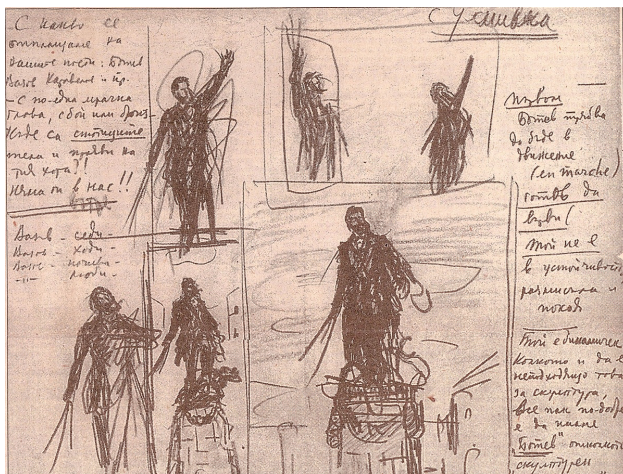 С какво се
отплащаме на
нашите поети: Ботев
Вазов Каравелов и пр.
– С по една мрачна
глава,
Къде са стоящите
тела и пориви на
тия хора?!
Няма ги в нас!!
Вазов – седи –
Вазов – ходи –
Вазов – почива –
–"– люби –
с усмивка
Извод
Ботев трябва
да бъде в
движение
(en marche)
готов да
върви (
Той не е
в устойчивост,
размисъла и
покой
Той е динамичен
колкото и да е
неподходящо това
за скулптура,
все пак по-добре
е да
"Ботев" отколкото
скулптурен